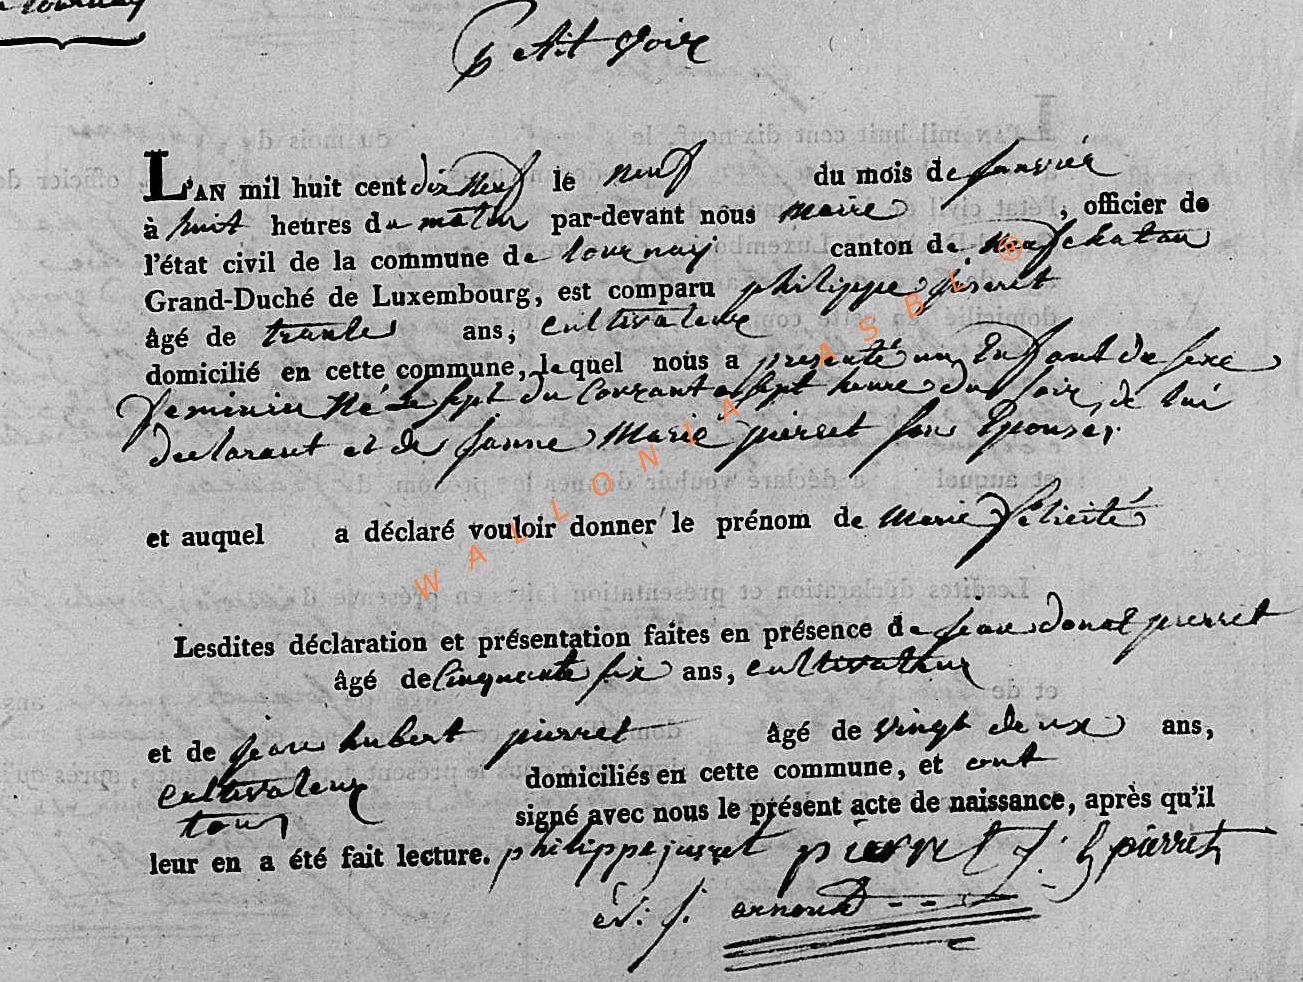 tournay
petit Voire
L'AN mil huit cent dix neuf le neuf du mois de janvier
à huit heures du matin par-devant nous maire , officier de
l'état civil de la commune de tournay canton de neufchatau
Grand-Duché de Luxembourg, est comparu philippe jusret
âgé de trante ans, cultivateur
domicilié en cette commune, lequel nous a presenté un Enfant du sexe
feminin Né le sept du Courant a sept heure du soir, de lui
declarant et de janne Marie pierret son Epouse,
et auquel a déclaré vouloir donner le prénom de Marie félicité
Lesdites déclaration et présentation faites en présence de jean donat pierret
âgé de Cinquante six ans, cultivateur
et de jean hubert pierret âgé de vingt deux ans,
cultivateur domiciliés en cette commune, et ont
tous signé avec nous le présent acte de naissance, après qu'il
leur en a été fait lecture. philippe jusret pierret j. h pierret
j. arnould
WALLONIA ASBL ®